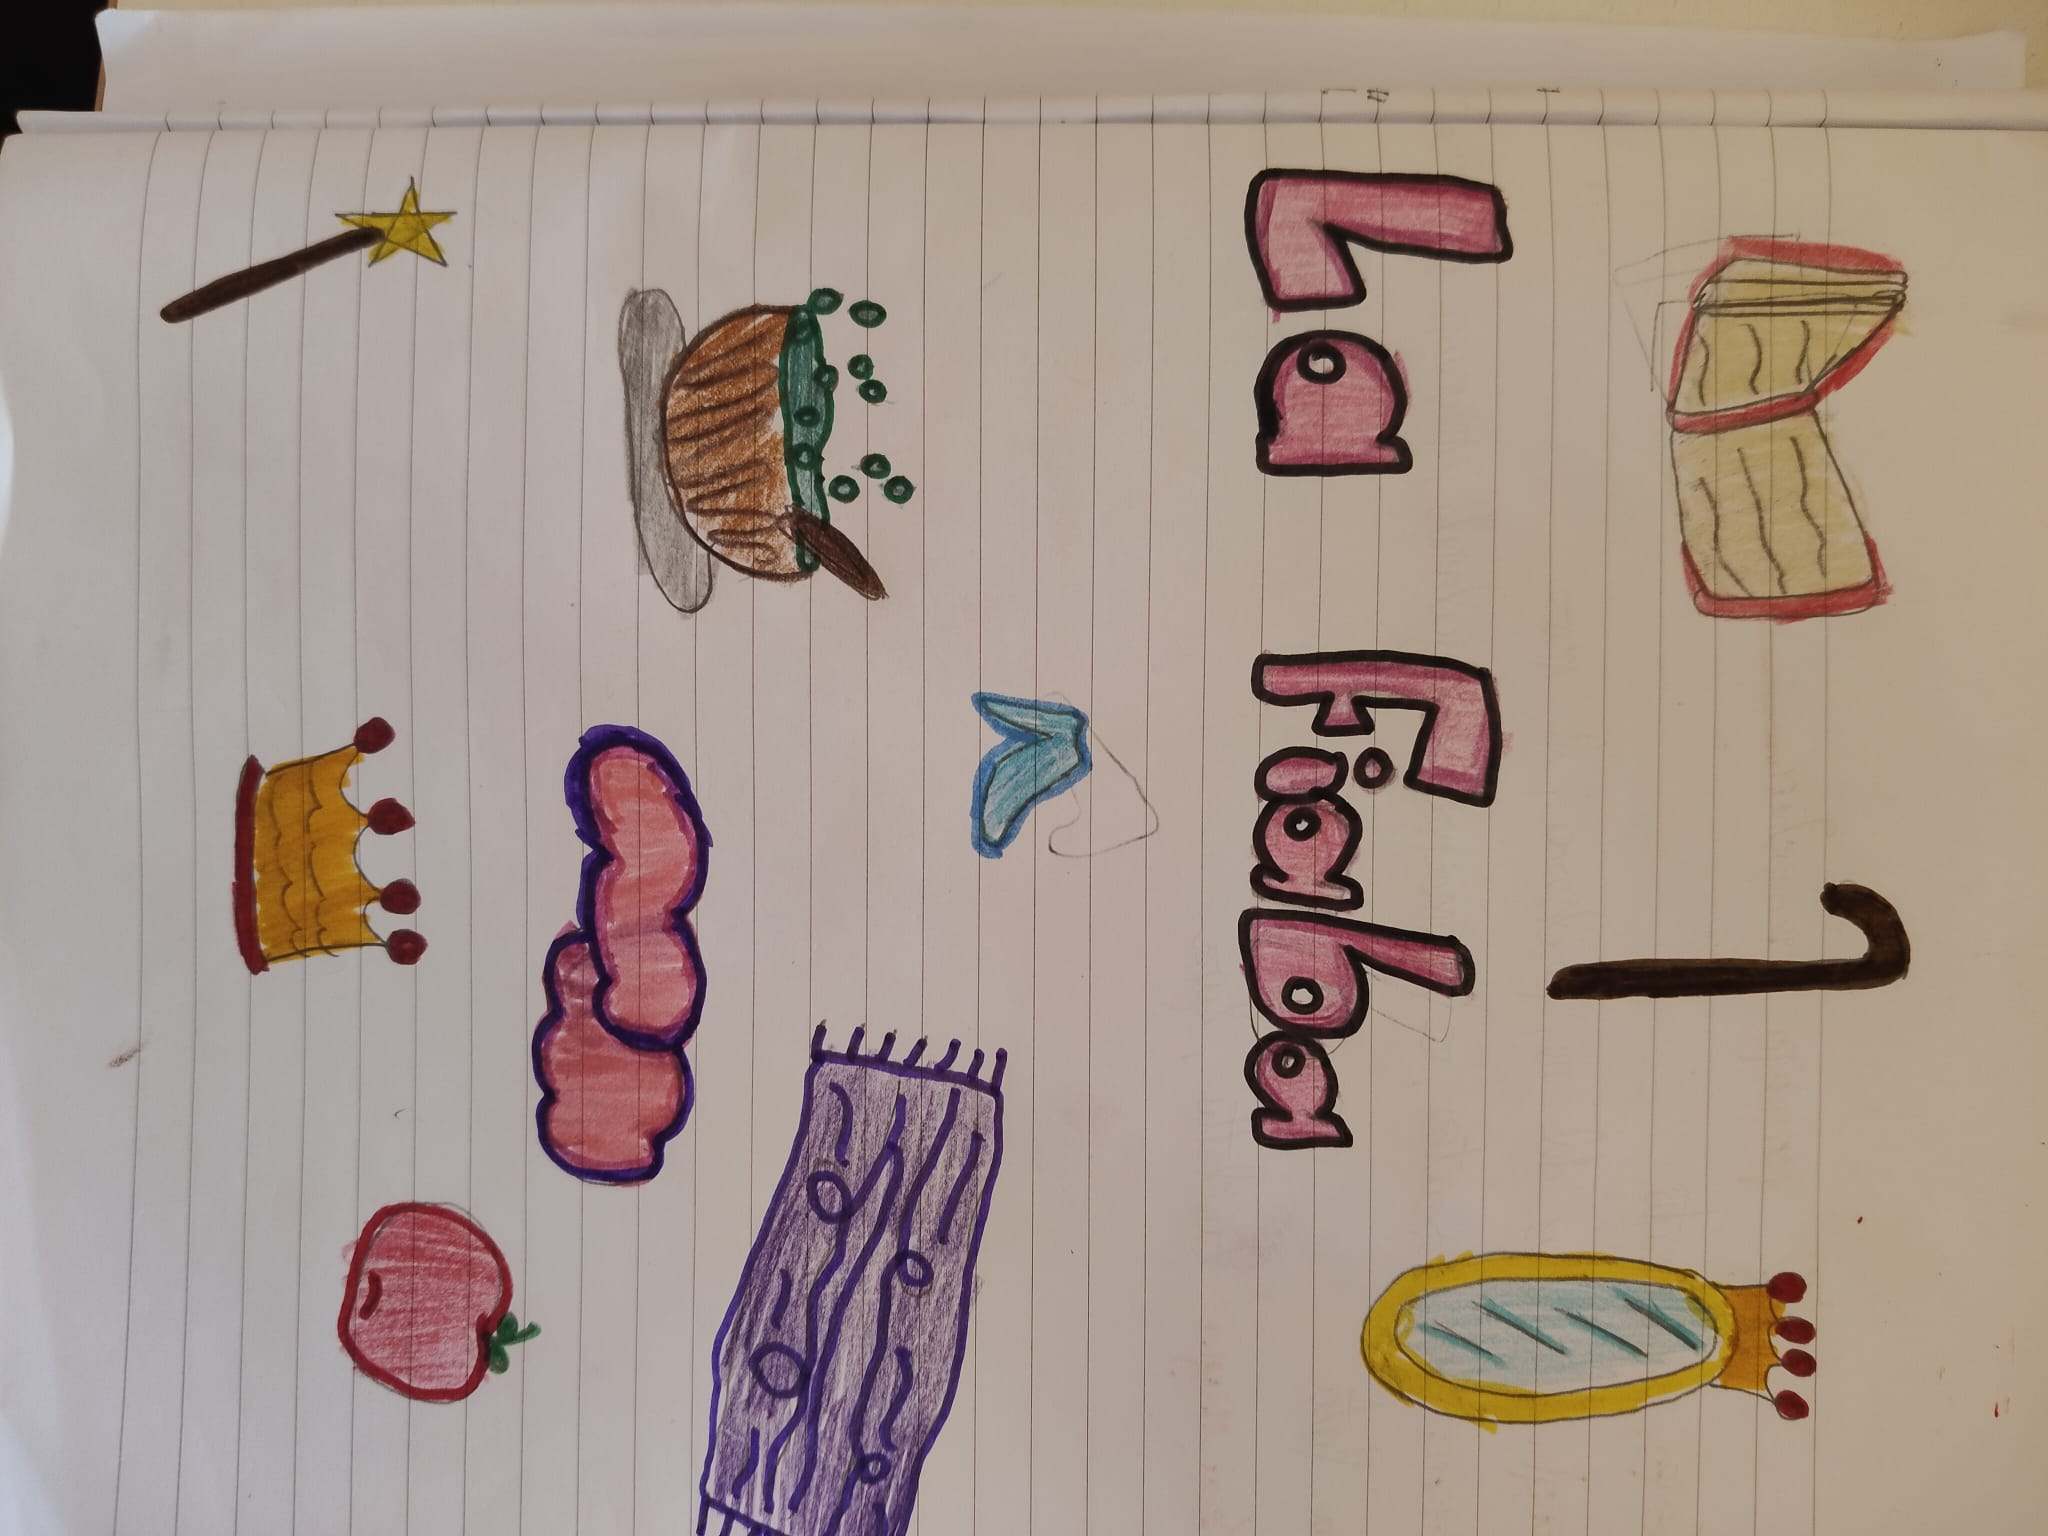 La Fiaba